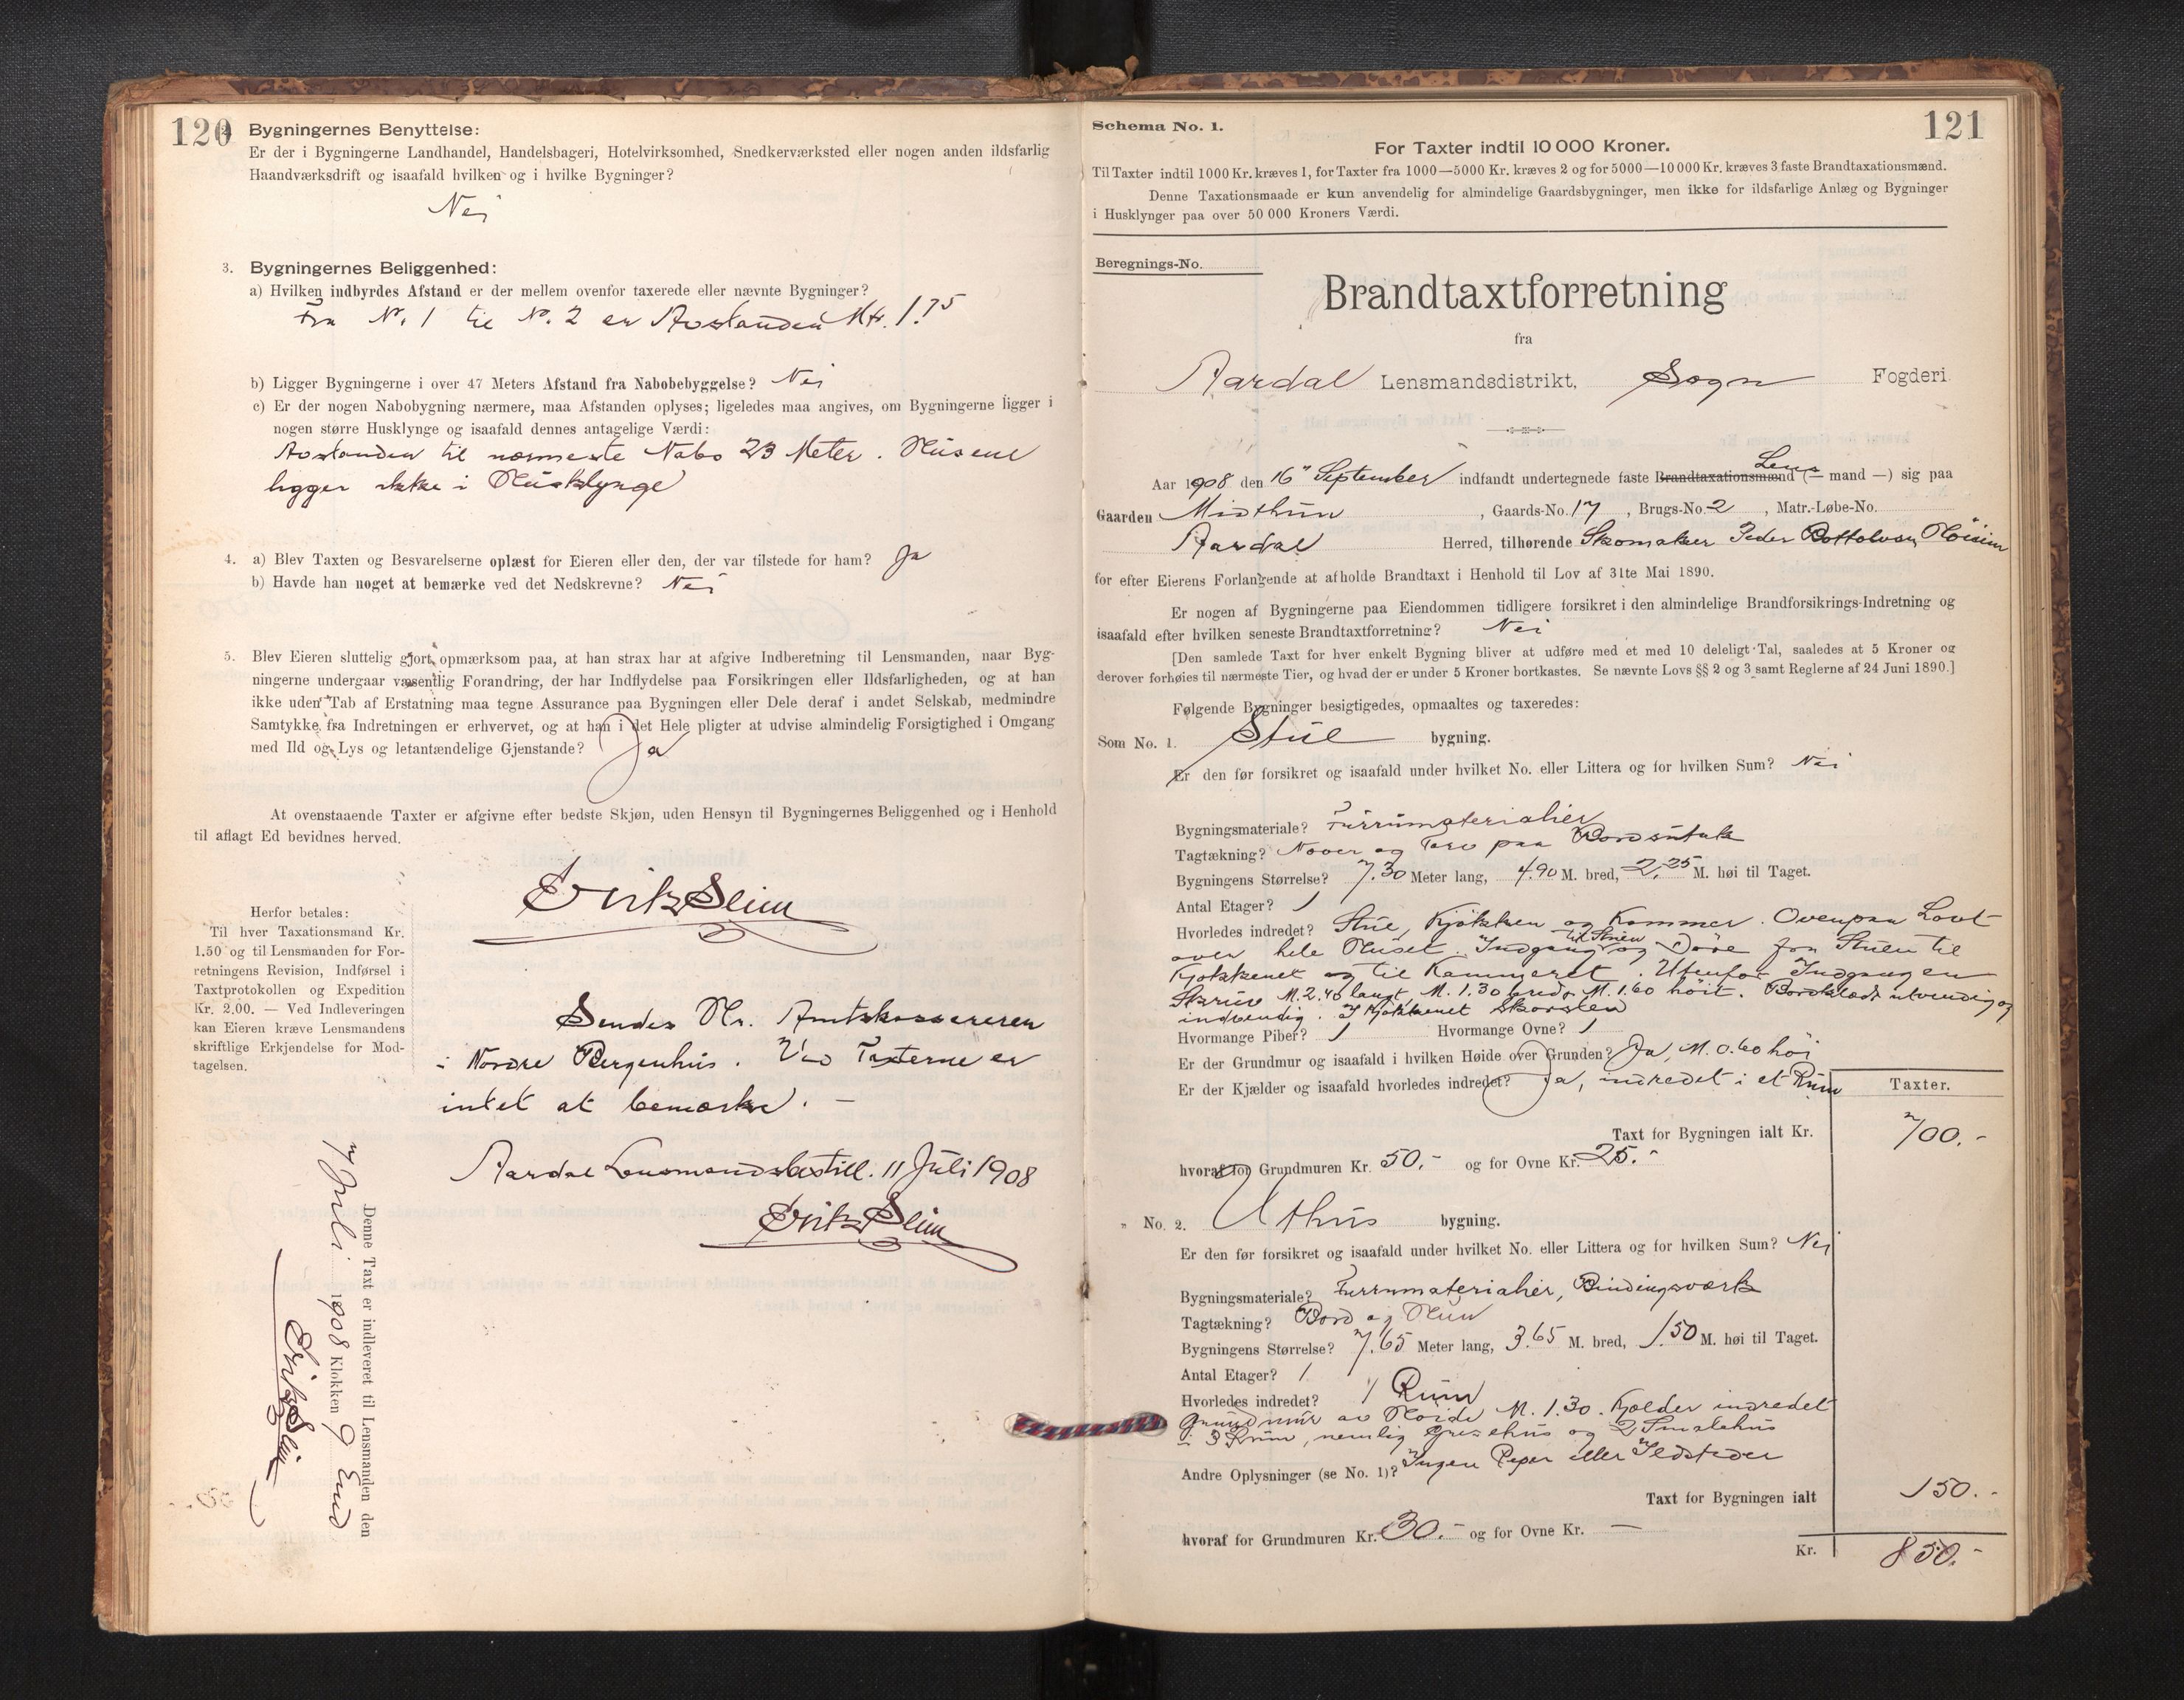 120
2. Bygningernes Benyttelse:
Er der i Bygningerne Landhandel, Handelsbageri, Hotelvirksomhed, Snedkerværksted eller nogen anden ildsfarlig
Haandværksdrift og isaafald hvilken og i hvilke Bygninger?
Nei
3. Bygningernes Beliggenhed:
a) Hvilken indbyrdes Afstand er der mellem ovenfor taxerede eller nævnte Bygninger?
Fra No. 1 til No. 2 er Avstanden Mtr. 1.75
b) Ligger Bygningerne i over 47 Meters Afstand fra Nabobebyggelse? Nei
c) Er der nogen Nabobygning nærmere, maa Afstanden oplyses; ligeledes maa angives, om Bygningerne ligger i
nogen større Husklynge og isaafald dennes antagelige Værdi:
Avstanden til nærmeste Nabo 23 Meter. Husene
ligger ikke i Husklynge
4. a) Blev Taxten og Besvarelserne oplæst for Eieren eller den, der var tilstede for ham? Ja
b) Havde han noget at bemærke ved det Nedskrevne? Nei
5. Blev Eieren sluttelig gjort opmærksom paa, at han strax har at afgive Indberetning til Lensmanden, naar Byg-
ningerne undergaar væsentlig Forandring, der har Indflydelse paa Forsikringen eller Ildsfarligheden, og at han
ikke uden Tab af Erstatning maa tegne Assurance paa Bygningen eller Dele deraf i andet Selskab, medmindre
Samtykke fra Indretningen er erhvervet, og at han i det Hele pligter at udvise almindelig Forsigtighed i Omgang
med Ild og Lys og letantændelige Gjenstande? Ja
At ovenstaaende Taxter er afgivne efter bedste Skjøn, uden Hensyn til Bygningernes Beliggenhed og i Henhold
til aflagt Ed bevidnes herved.
Erik Slim
Herfor betales:
Til hver Taxationsmand Kr.
1.50 og til Lensmanden for For-
retningens Revision, Indførsel i
Taxtprotokollen og Expedition
Kr. 2.00. — Ved Indleveringen
kan Eieren kræve Lensmandens
skriftlige Erkjendelse for Mod-
tagelsen.
Sendes Hr. Amtskassereren
i Nordre Bergenhus. Ved Taxterne er
intet at bemærke. —
Aardal Lensmandsbestill. 11 Juli 1908
Erik Slim
Denne Taxt er indleveret til Lensmanden den
7 Juli 1908 Klokken 9 Emd
Erik Slim
121
Schema No. 1.
For Taxter indtil 10 000 Kroner.
Til Taxter indtil 1000 Kr. kræves 1, for Taxter fra 1000—5000 Kr. kræves 2 og for 5000—10 000 Kr. kræves 3 faste Brandtaxationsmænd.
Denne Taxationsmaade er kun anvendelig for almindelige Gaardsbygninger, men ikke for ildsfarlige Anlæg og Bygninger
i Husklynger paa over 50 000 Kroners Værdi.
Beregnings-No.
Brandtaxtforretning
fra
Aardal Lensmandsdistrikt, Sogn Fogderi
Lens
Aar 1908 den 16" September indfandt undertegnede faste Brandtaxationsmænd (— mand —) sig paa
Gaarden Midthun, Gaards-No. 17, Brugs-No. 2, Matr.-Løbe-No.
Aardal Herred, tilhørende Skomaker Peder Bottolvsen
for efter Eierens Forlangende at afholde Brandtaxt i Henhold til Lov af 31te Mai 1890.
Er nogen af Bygningerne paa Eiendommen tidligere forsikret i den almindelige Brandforsikrings-Indretning og
isaafald efter hvilken seneste Brandtaxtforretning? Nei
[Den samlede Taxt for hver enkelt Bygning bliver at udføre med et med 10 deleligt Tal, saaledes at 5 Kroner og
derover forhøies til nærmeste Tier, og hvad der er under 5 Kroner bortkastes. Se nævnte Lovs §§ 2 og 3 samt Reglerne af 24 Juni 1890.]
Følgende Bygninger besigtigedes, opmaaltes og taxeredes:
Som No. 1. Stue bygning.
Er den før forsikret og isaafald under hvilket No. eller Littera og for hvilken Sum? Nei
Bygningsmateriale? Furrumaterialier
Tagtækning? Næver og Torv paa Bordsutak
Bygningens Størrelse? 7.30 Meter lang, 4.90 M. bred, 2.25 M. høi til Taget.
Antal Etager? 1
Hvorledes indredet? Stue, Kjøkken og Kammer. Ovenpaa Lovt
over hele Huset. Indgang til Stuen og Døre fra Stuen til
Kjøkkenet og til Kammeret. Utenfor Indgangen
Skruv M. 2.40 langt, M. 1.30 bredt, M. 1.60 høit. Bordklædt utvendig og
indvendig. I Kjøkkenet Skorsten
Hvormange Piber? 1 Hvormange Ovne? 1
Er der Grundmur og isaafald i hvilken Høide over Grunden? Ja, M. 0.60 høi
Er der Kjælder og isaafald hvorledes indredet? Ja, indredet i et Rum
Taxter.
Taxt for Bygningen ialt Kr. 700.-
hvoraf for Grundmuren Kr. 50.- og for Ovne Kr. 25.-
" No. 2. Uthus bygning.
Er den før forsikret og isaafald under hvilket No. eller Littera og for hvilken Sum? Nei
Bygningsmateriale? Furrumaterialier, Bindingsværk
Tagtækning? Bord og
Bygningens Størrelse? 7.65 Meter lang, 3.65 M. bred, 1.50 M. høi til Taget.
Antal Etager? 1
Hvorledes indredet? 1 Rum
Grundmur av Høide M. 1.30. Kjælder indredet
i 3 Rum, nemlig Grisehus og 2 Smalehus
Andre Oplysninger (se No. 1)? Ingen Peper eller Ildsteder
Taxt for Bygningen ialt 150.-
hvoraf for Grundmuren Kr. 30.- og for Ovne Kr. —
Kr. 850.-